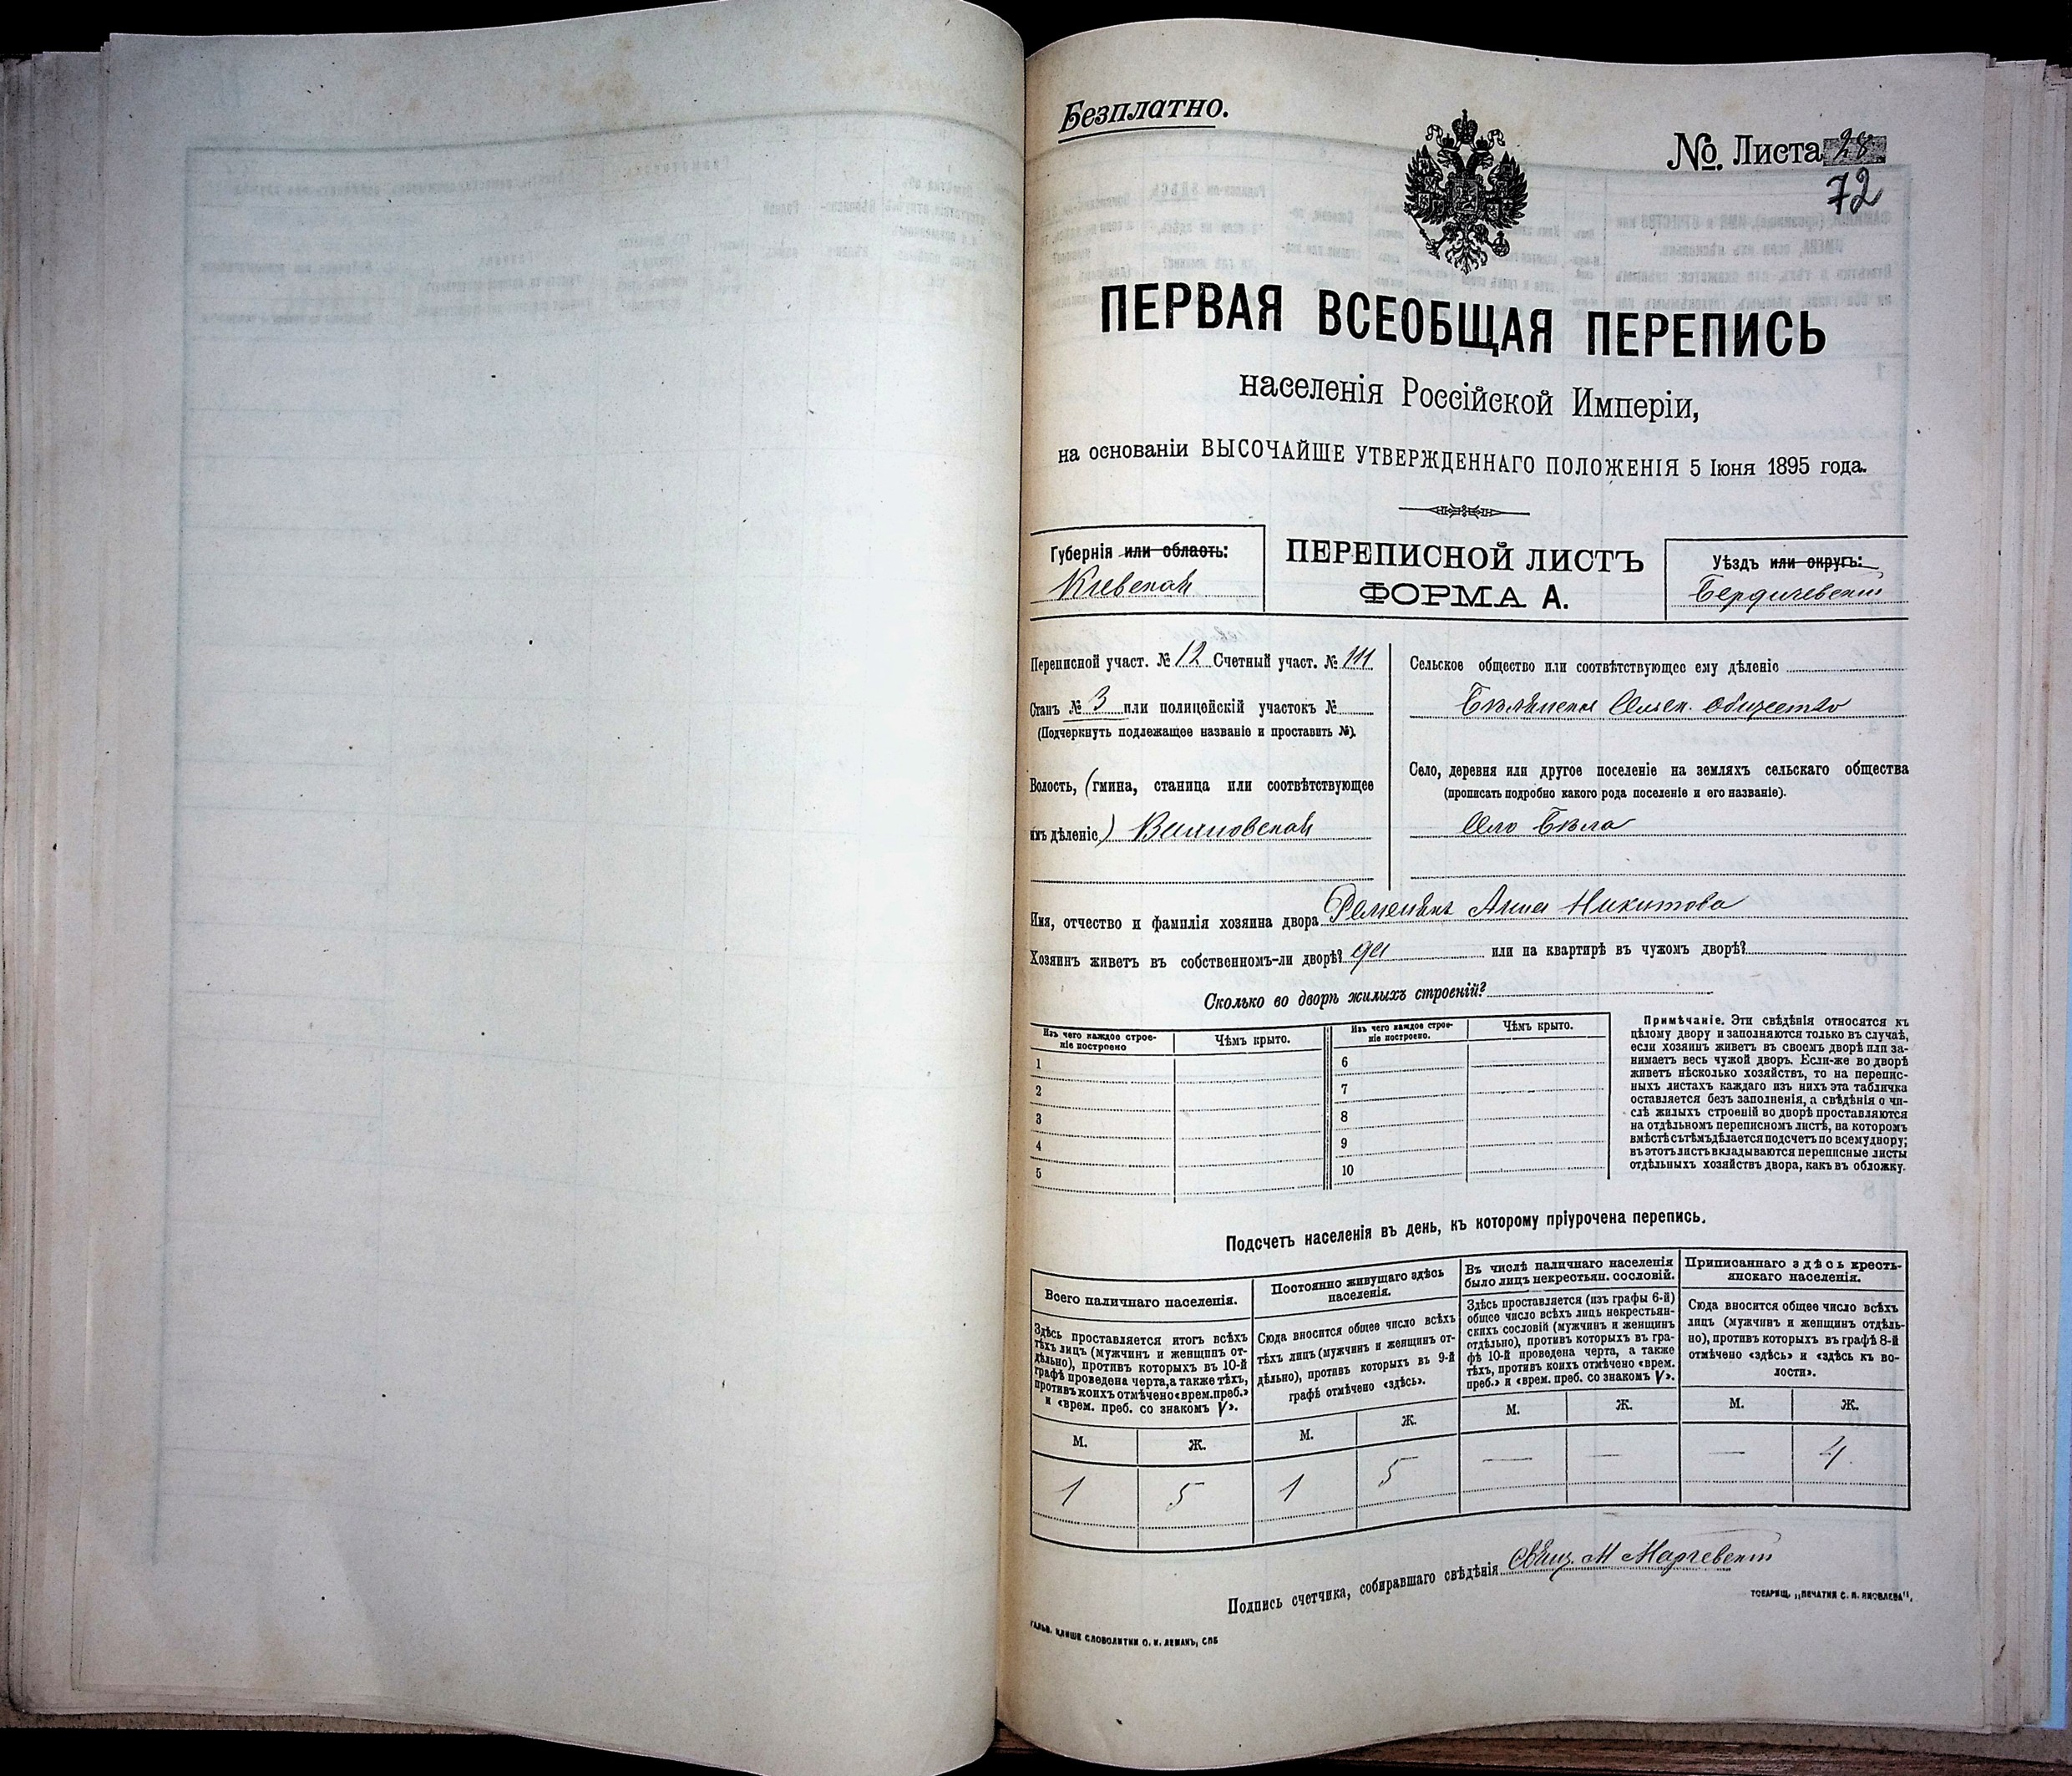 Безплатно.
№ Листа 28
72
ПЕРВАЯ ВСЕОБЩАЯ ПЕРЕПИСЬ
населенія Россійской Имперіи,
на основаніи ВЫСОЧАЙШЕ УТВЕРЖДЕННАГО ПОЛОЖЕНІЯ 5 Іюня 1895 года.
Губернія или область:
Кіевская
ПЕРЕПИСНОЙ ЛИСТЪ
ФОРМА А.
Уѣздъ или округъ:
Бердичевскій
Переписной участ. № 12 Счетный участ. № 111
Станъ № 3 или полицейскій участокъ №
(Подчеркнуть подлежащее названіе и проставить №).
Волость, (гмина, станица или соотвѣтствующее
имъ дѣленіе)
Сельское общество или соотвѣтствующее ему дѣленіе
общество
Село, деревня или другое поселеніе на земляхъ сельскаго общества
(прописать подробно какого рода поселеніе и его названіе).
Село Бѣла
Имя, отчество и фамилія хозяина двора Анна Никитова
Хозяинъ живетъ въ собственномъ-ли дворѣ? да или на квартирѣ въ чужомъ дворѣ?
Сколько во дворѣ жилыхъ строеній?
Изъ чего каждое строе-
ніе построено
Чѣмъ крыто.
1
2
3
4
5
Изъ чего каждое строе-
ніе построено.
Чѣмъ крыто.
6
7
8
9
10
Примѣчаніе. Эти свѣдѣнія относятся къ
цѣлому двору и заполняются только въ случаѣ,
если хозяинъ живетъ въ своемъ дворѣ или за-
нимаетъ весь чужой дворъ. Если-же во дворѣ
живетъ нѣсколько хозяйствъ, то на перепис-
ныхъ листахъ каждаго изъ нихъ эта табличка
оставляется безъ заполненія, а свѣдѣнія о чи-
слѣ жилыхъ строеній во дворѣ проставляются
на отдѣльномъ переписномъ листѣ, на которомъ
вмѣстѣ съ тѣмъ дѣлается подсчетъ по всему двору;
въ этотъ листъ вкладываются переписные листы
отдѣльныхъ хозяйствъ двора, какъ въ обложку.
Подсчетъ населенія въ день, къ которому пріурочена перепись.
Всего наличнаго населенія.
Здѣсь проставляется итогъ всѣхъ
тѣхъ лицъ (мужчинъ и женщинъ от-
дѣльно), противъ которыхъ въ 10-й
графѣ проведена черта, а также тѣхъ,
противъ коихъ отмѣчено «врем. преб.»
и «врем. преб. со знакомъ V».
М.
Ж.
1
5
Постоянно живущаго здѣсь
населенія.
Сюда вносится общее число всѣхъ
тѣхъ лицъ (мужчинъ и женщинъ от-
дѣльно), противъ которыхъ въ 9-й
графѣ отмѣчено «здѣсь».
М.
Ж.
1
5
Въ числѣ наличнаго населенія
было лицъ некрестьян. сословій.
Здѣсь проставляется (изъ графы 6-й)
общее число всѣхъ лицъ некрестьян-
скихъ сословій (мужчинъ и женщинъ
отдѣльно), противъ которыхъ въ гра-
фѣ 10-й проведена черта, а также
тѣхъ, противъ коихъ отмѣчено «врем.
преб.» и «врем. преб. со знакомъ V».
М.
Ж.
—
—
Приписаннаго здѣсь кресть-
янскаго населенія.
Сюда вносится общее число всѣхъ
лицъ (мужчинъ и женщинъ отдѣль-
но), противъ которыхъ въ графѣ 8-й
отмѣчено «здѣсь» и «здѣсь къ во-
лости».
М.
Ж.
—
4
Подпись счетчика, собиравшаго свѣдѣнія Свящ. М
ГАЛЬВ. КЛИШЕ СЛОВОЛИТНИ О. И. ЛЕМАНЪ, СПБ
ТОВАРИЩ. „ПЕЧАТНЯ С. П. ЯКОВЛЕВА".